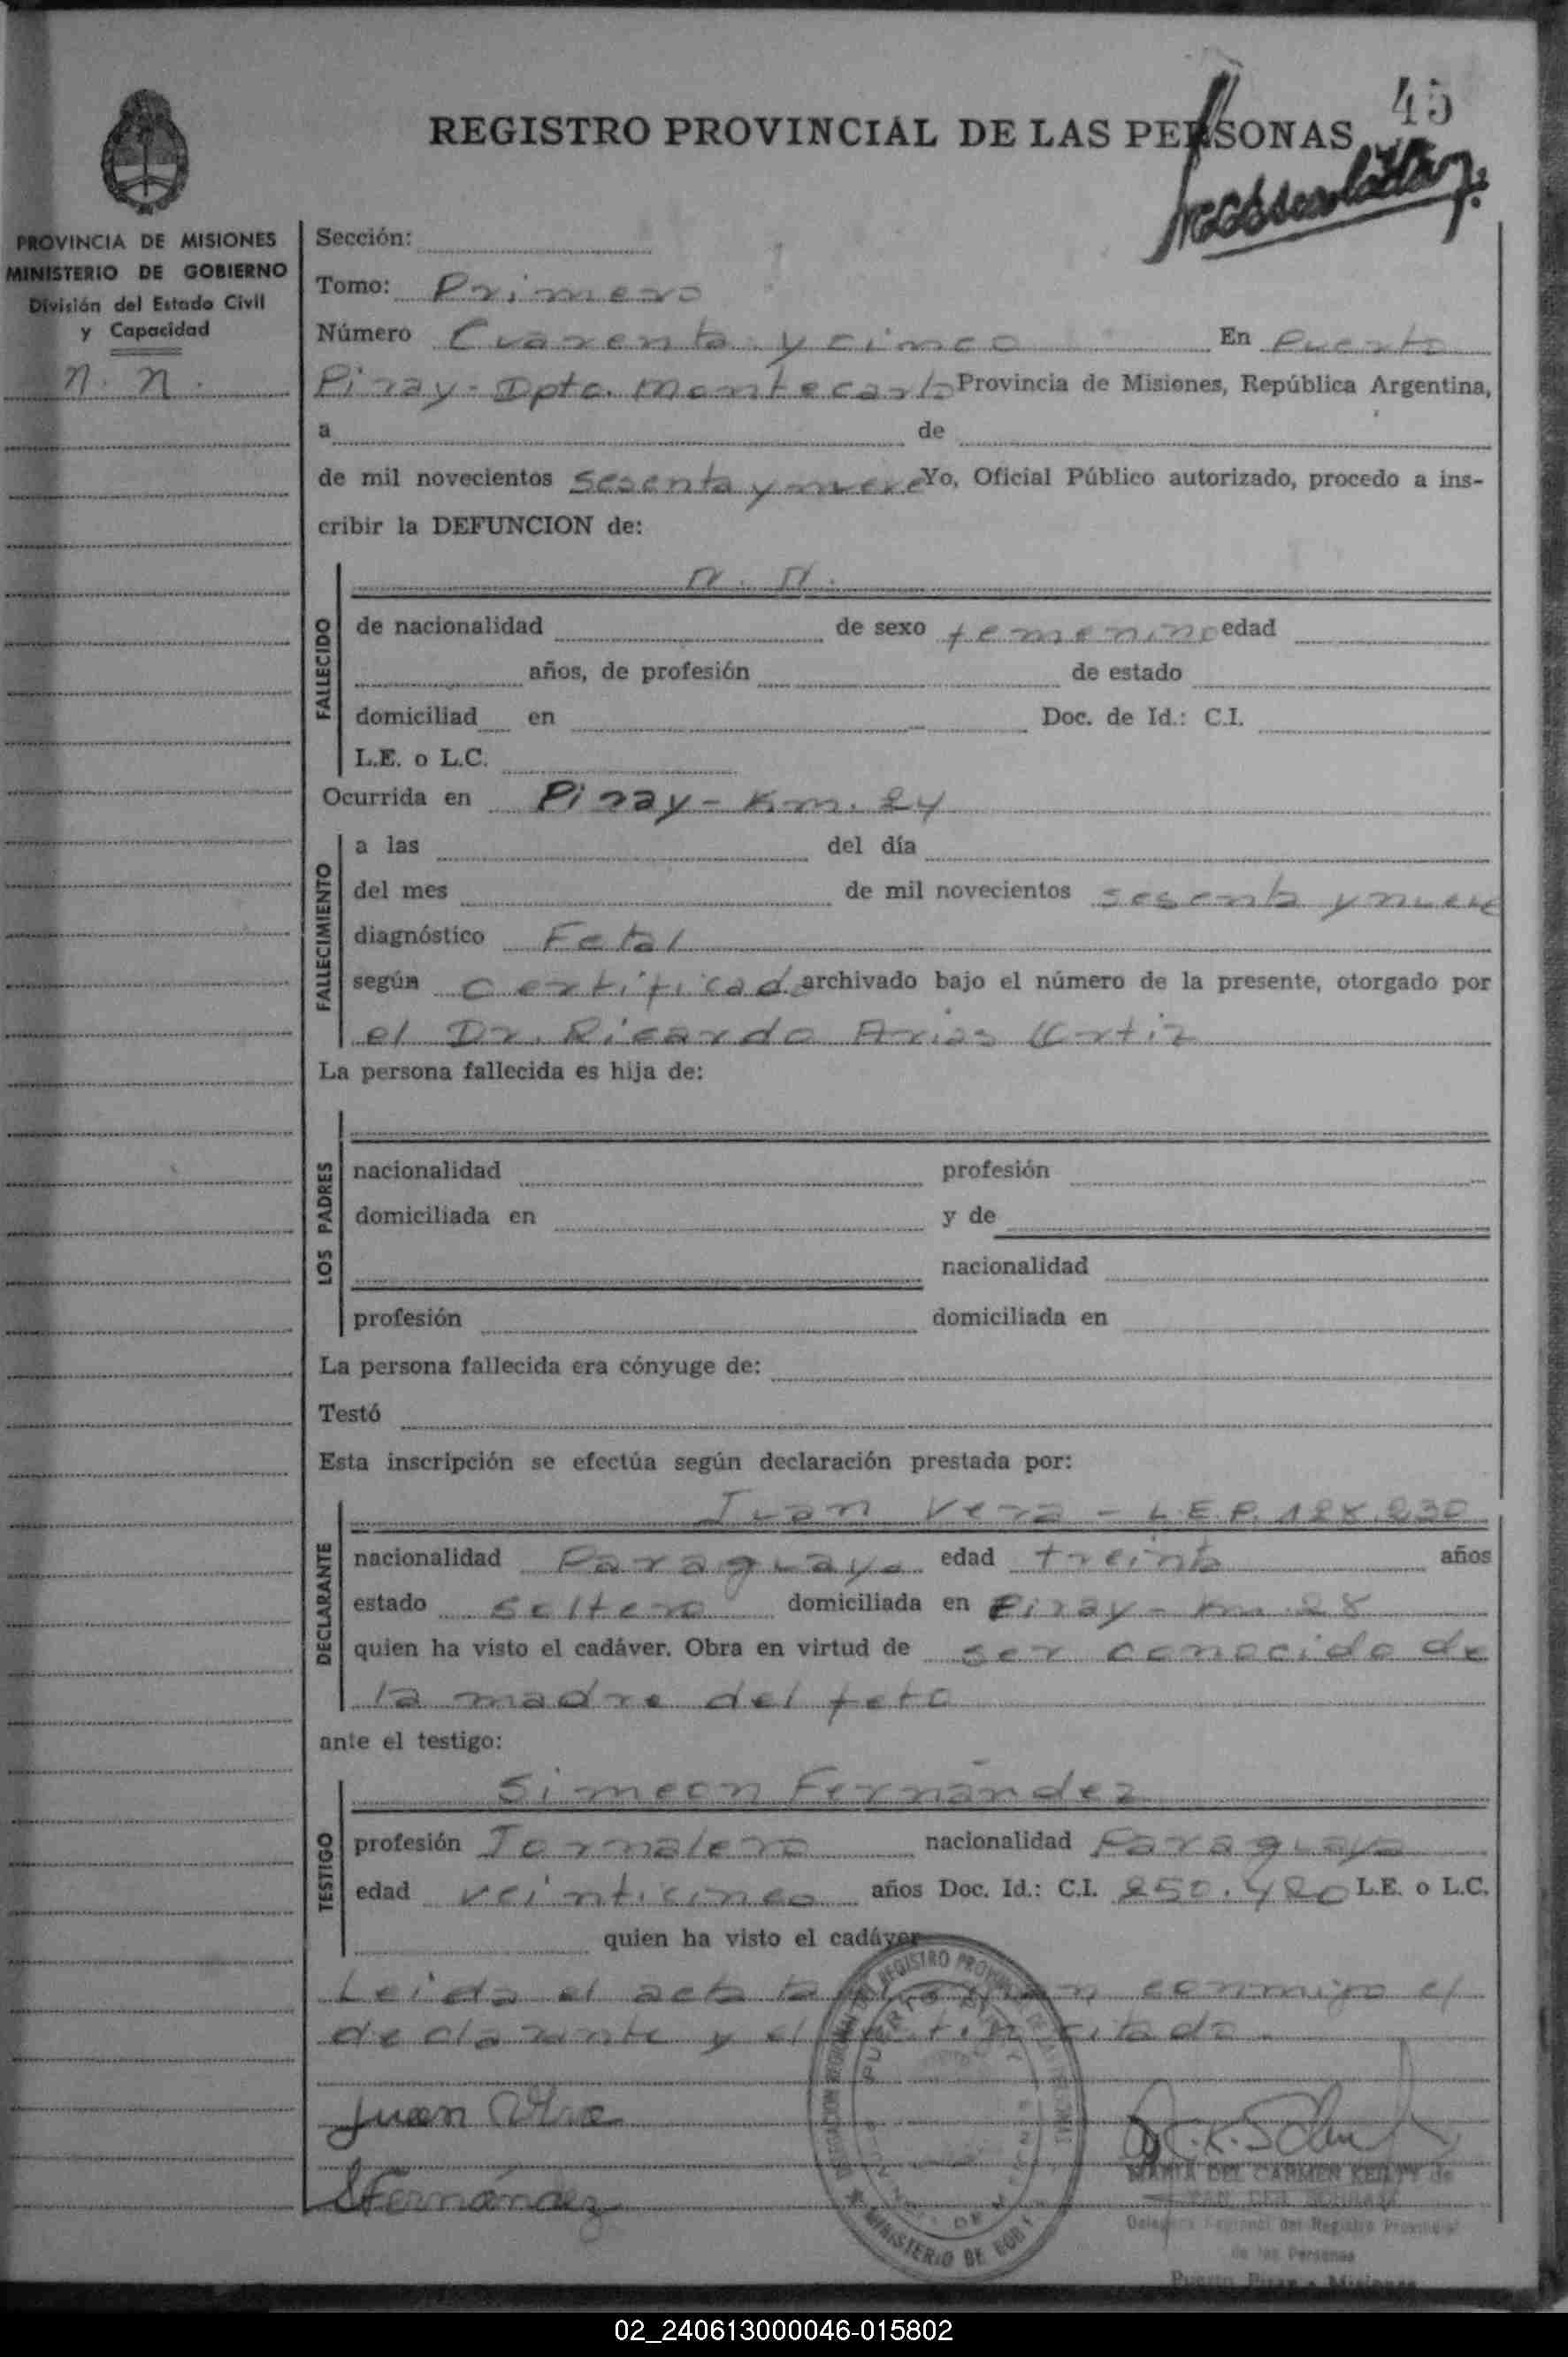 45
REGISTRO PROVINCIAL DE LAS PERSONAS
PROVINCIA DE MISIONES
MINISTERIO DE GOBIERNO
División del Estado Civil
y Capacidad
n. n.
Sección:
Tomo: Primero
Número Cuarenta y cinco En Puerto
Piray - Dpto. Montecarlo Provincia de Misiones, República Argentina,
a de
de mil novecientos sesenta y nueve Yo, Oficial Público autorizado, procedo a ins-
cribir la DEFUNCION de:
n. n.
FALLECIDO
de nacionalidad de sexo femenino edad
años, de profesión de estado
domiciliad en Doc. de Id.: C.I.
L.E. o L.C.
Ocurrida en Piray - Km. 24
FALLECIMIENTO
a las del día
del mes de mil novecientos sesenta y nueve
diagnóstico Fetal
según certificado archivado bajo el número de la presente, otorgado por
el Dr. Ricardo Arias Ortiz
La persona fallecida es hija de:
LOS PADRES
nacionalidad profesión
domiciliada en y de
nacionalidad
profesión domiciliada en
La persona fallecida era cónyuge de:
Testó
Esta inscripción se efectúa según declaración prestada por:
DECLARANTE
Juan Vera - L.E.P. 128.230
nacionalidad Paraguayo edad treinta años
estado soltero domiciliada en Piray - Km. 28
quien ha visto el cadáver. Obra en virtud de ser conocido de
la madre del feto
ante el testigo:
TESTIGO
Simeon Fernández
profesión Jornalero nacionalidad Paraguayo
edad veinticinco años Doc. Id.: C.I. 250.420 L.E. o L.C.
quien ha visto el cadáver
Leida el acta la conmigo el
declarante y el citado.
Juan Vera
SFernandez
MARIA DEL CARMEN KEILTY de
Delegada Regional del Registro Provincial
de las Personas
Puerto Piray - Misiones
MINISTERIO DE GOB
02_240613000046-015802